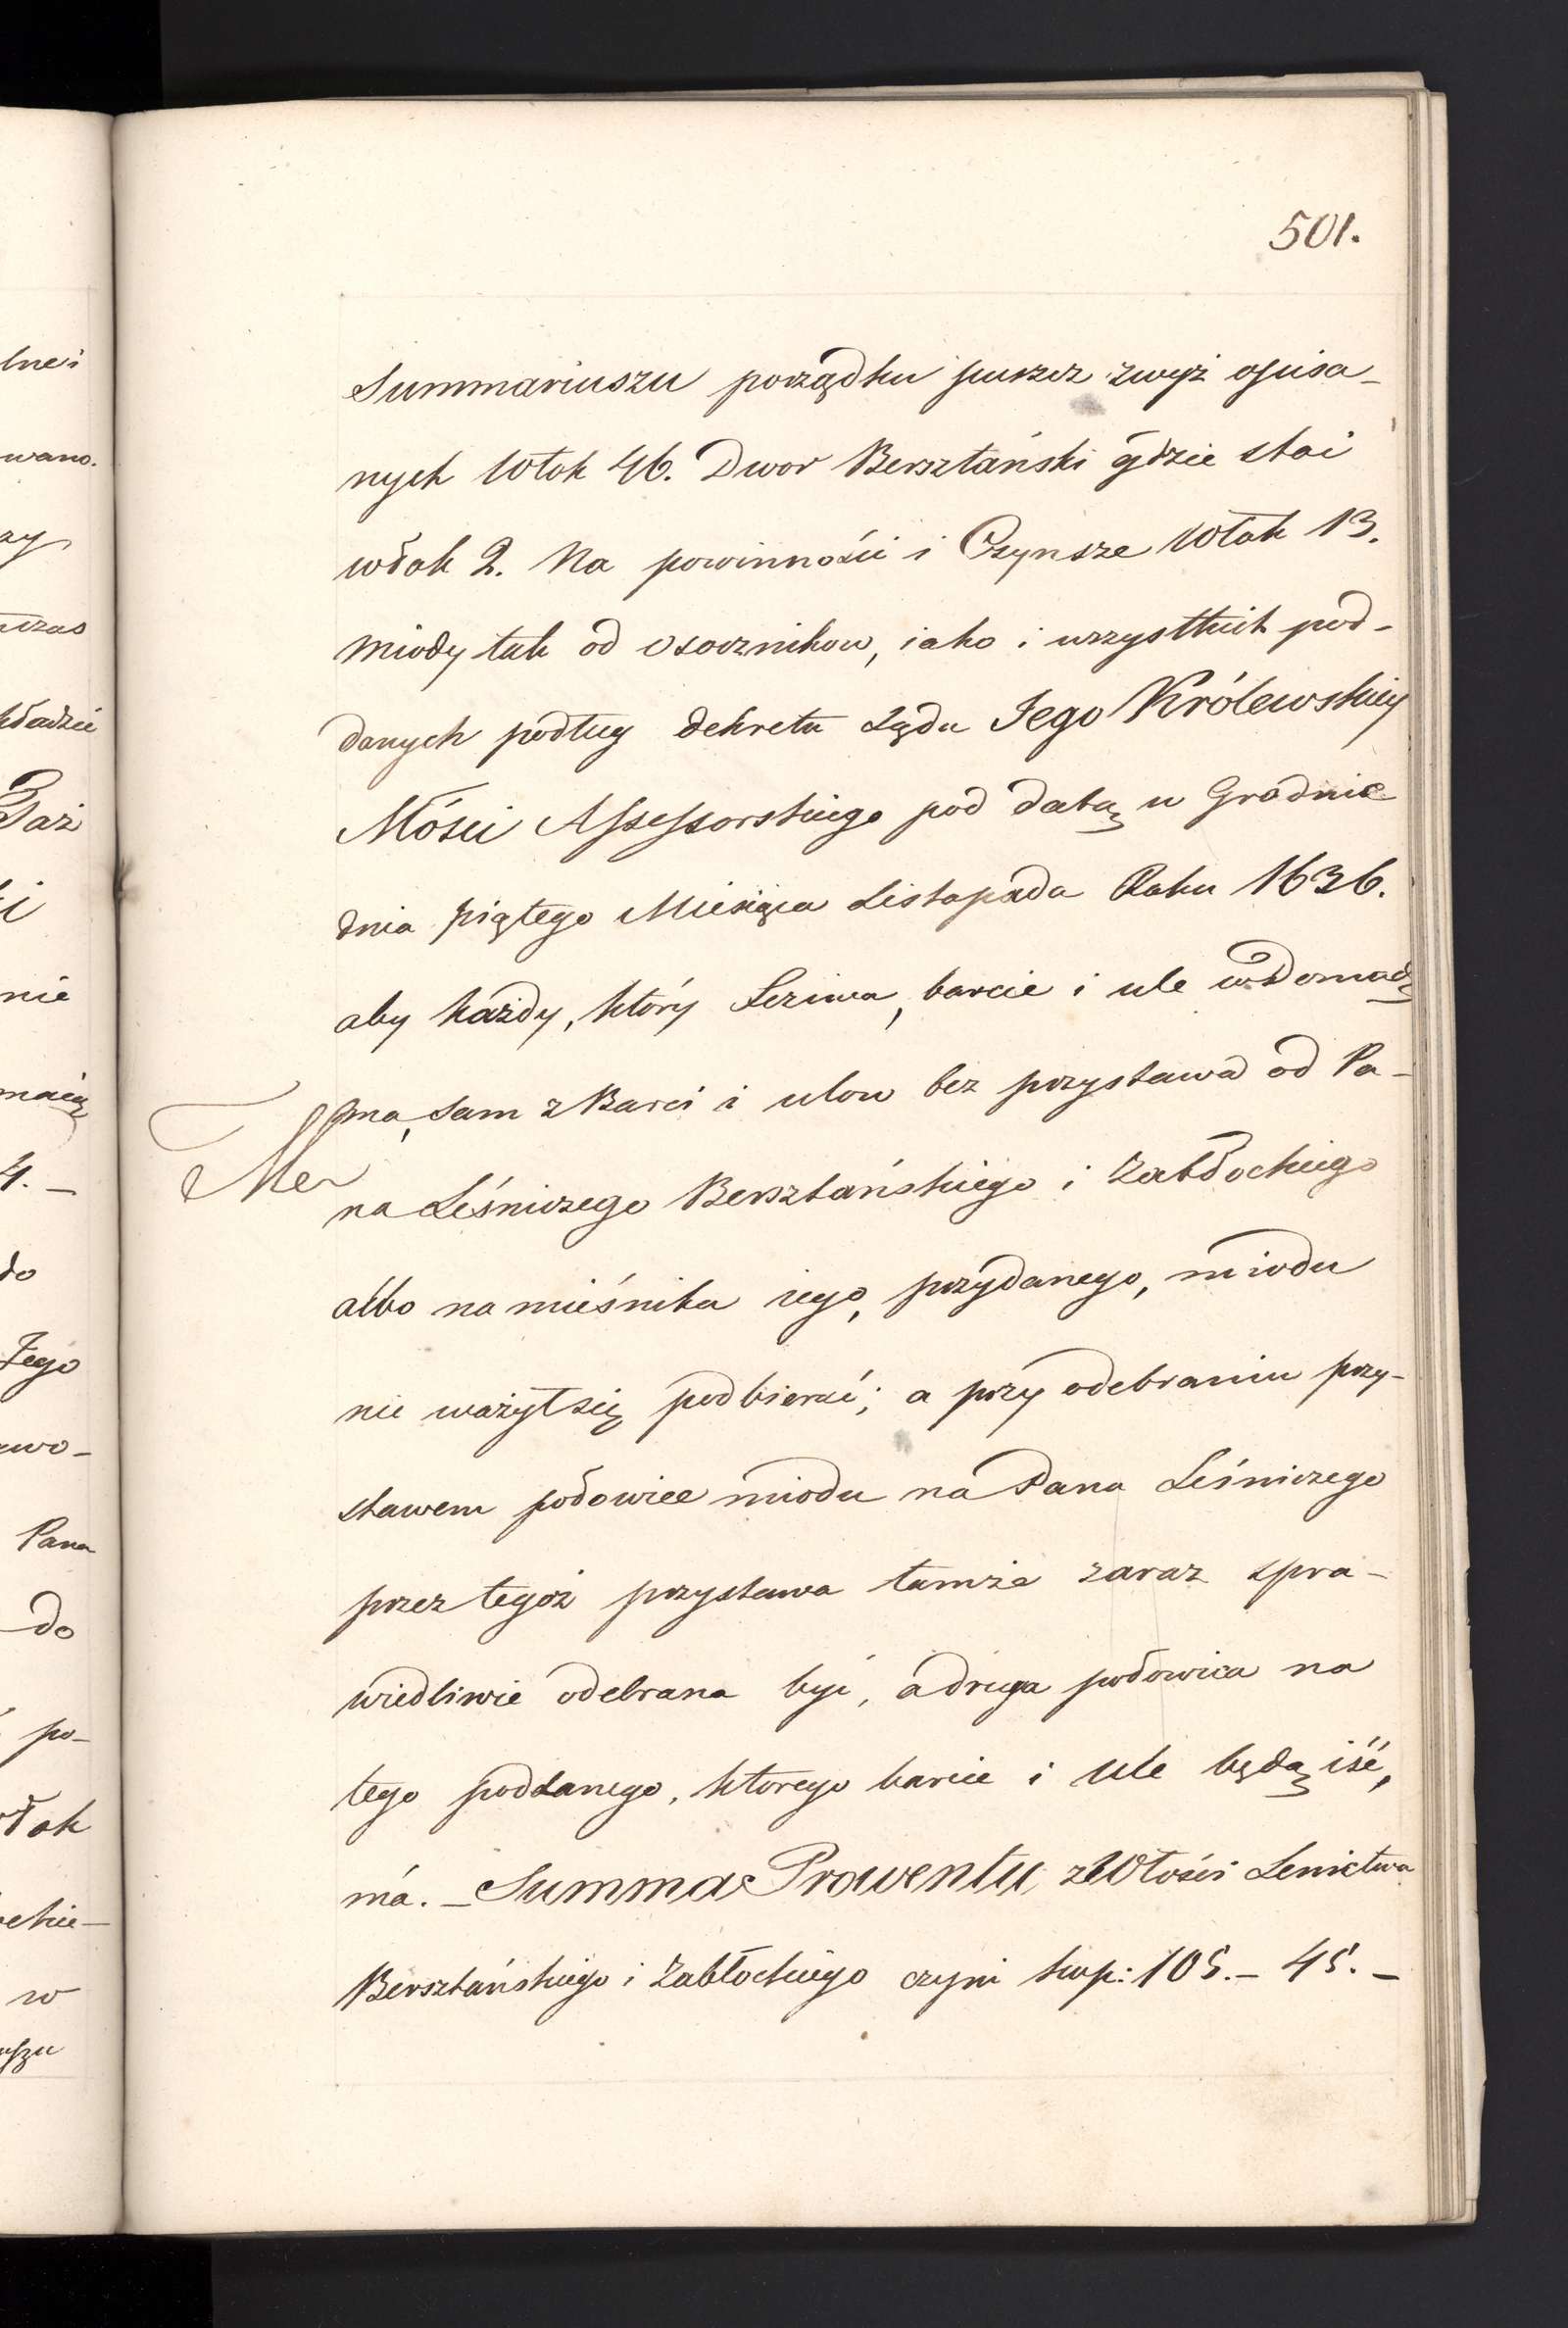 501.
Summariuszu porządku puszcz zwyż opisa-
nych Włok 46. Dwor Bersztański gdzie stoi
włok 2. Na powinności i Czynsze Włok 13.
Miody tak od osoczników, iako i wszystkich pod-
danych podług dekretu Sądu Jego Królewskiey
Mości Assessorskiego pod datą w Grodnie
dnia piątego Miesiąca Listopada Roku 1636.
aby każdy, który Leziwa, barcie i ule w
ma, sam z Barci i ulow bez przystawa od Pa-
na Leśniczego Bersztańskiego i Zabłockiego
albo namieśnika iego, przydanego, miodu
nie ważył się podbierać; a przy odebraniu przy-
stawem połowice miodu na Pana Leśniczego
przez tegoż przystawa tamże zaraz spra-
wiedliwie odebrana być, a druga połowica na
tego poddanego, ktorego barcie i ule będą iść,
má. – Summa Prowentu z Włości Lenictwa
Bersztańskiego i Zabłockiego czyni kop: 105.– 45.–
lnei
wano.
zy
kładzie
i
nie
maią
4. –
do
Jego
wo-
Pana
do
po-
ok
ckie-
w